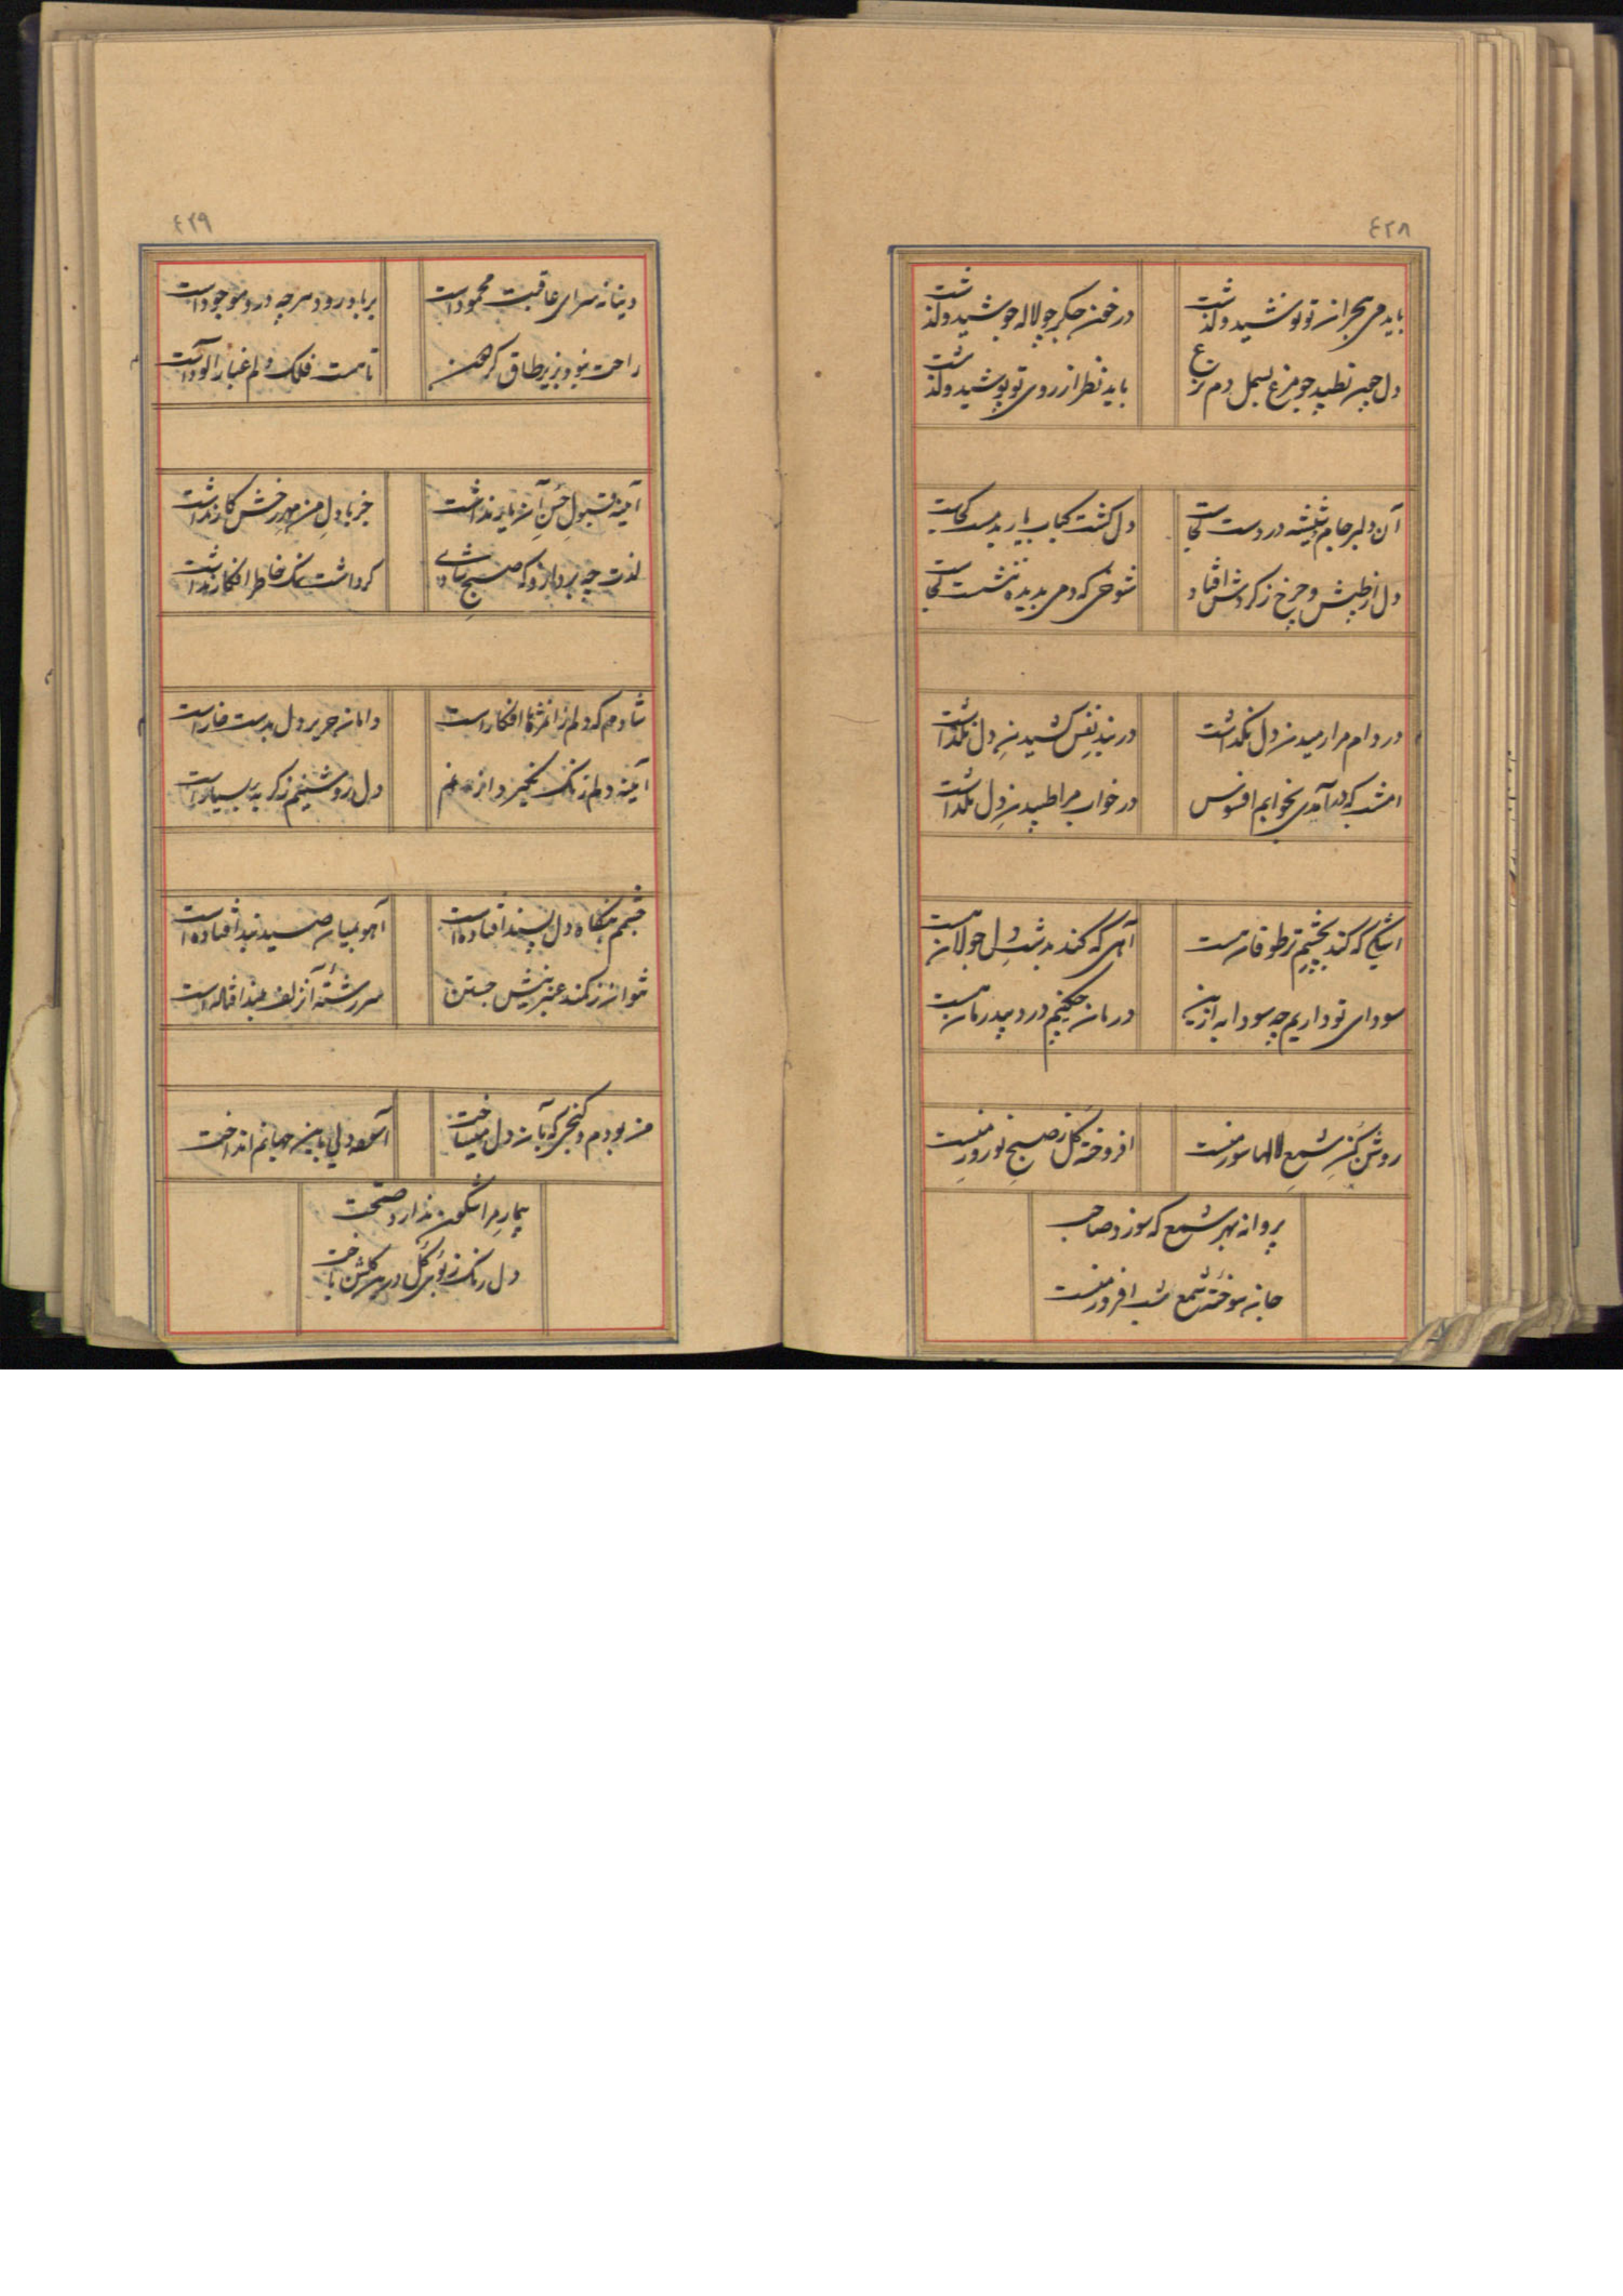 ٤٢٨
باید می هجران تو نوشید و گذشت
در خون جگر چو لاله جوشید و گذشت
دل چند تپید چو مرغ بسمل دم نزع
باید نظر از روی تو پوشید و گذشت
آن دلبر جام و شیشه در دست کجاست
دل گشت کباب یار بدمست کجاست
دل از طپش و چرخ ز گردش افتاد
شوخی که دمی بدیده ننشست کجاست
در دام مرا رمیدن دل نگذاشت
در بند نفس کشیدن دل نگذاشت
امشب که در آمدی بخوابم افسوس
در خواب مرا طپیدن دل نگذاشت
اشکی که کند بچشم تر طوفان هست
آهی که کند بدشت دل جولان هست
سودای تو داریم چه سودا به ازین
درمان چکنیم درد بیدرمان هست
روشن کن شمع لالها سوز منست
افروخته گل ز صبح نوروز منست
پروانه بهر شمع که سوزد صاحب
جان سوخته شمع شب افروز منست
٤٢٩
دنیا نه سرای عاقبت محمود است
بر باد رود هر چه درو موجود است
راحت نبود بزیر طاق گردون
تا هست فلک دلم غبار آلود است
آئینه قبول حسن آن یار نداشت
جز با دل من مهر رخش کار نداشت
لذت چه برد ازو که صبح شادی
گر داشت نمک خاطر افکار نداشت
شادم که دلم زان مژه‌ها افکار است
دامان حریر دل بدست خار است
آئینه دلم زنگ نگیرد از غم
دل روشنیم ز گریه بسیار است
چشمم بنگاه دل پسند افتاده است
آهو بمیان صید بند افتاده است
نتوان ز کمند عنبرینش جستن
سررشته آن زلف بلند افتاده است
من بودم و کنجی که بآن دل میساخت
آسوده دلی باین جهانم انداخت
بیمار مرا شگون ندارد صحت
دل رنگ ز بوی گل درین گلشن باخت